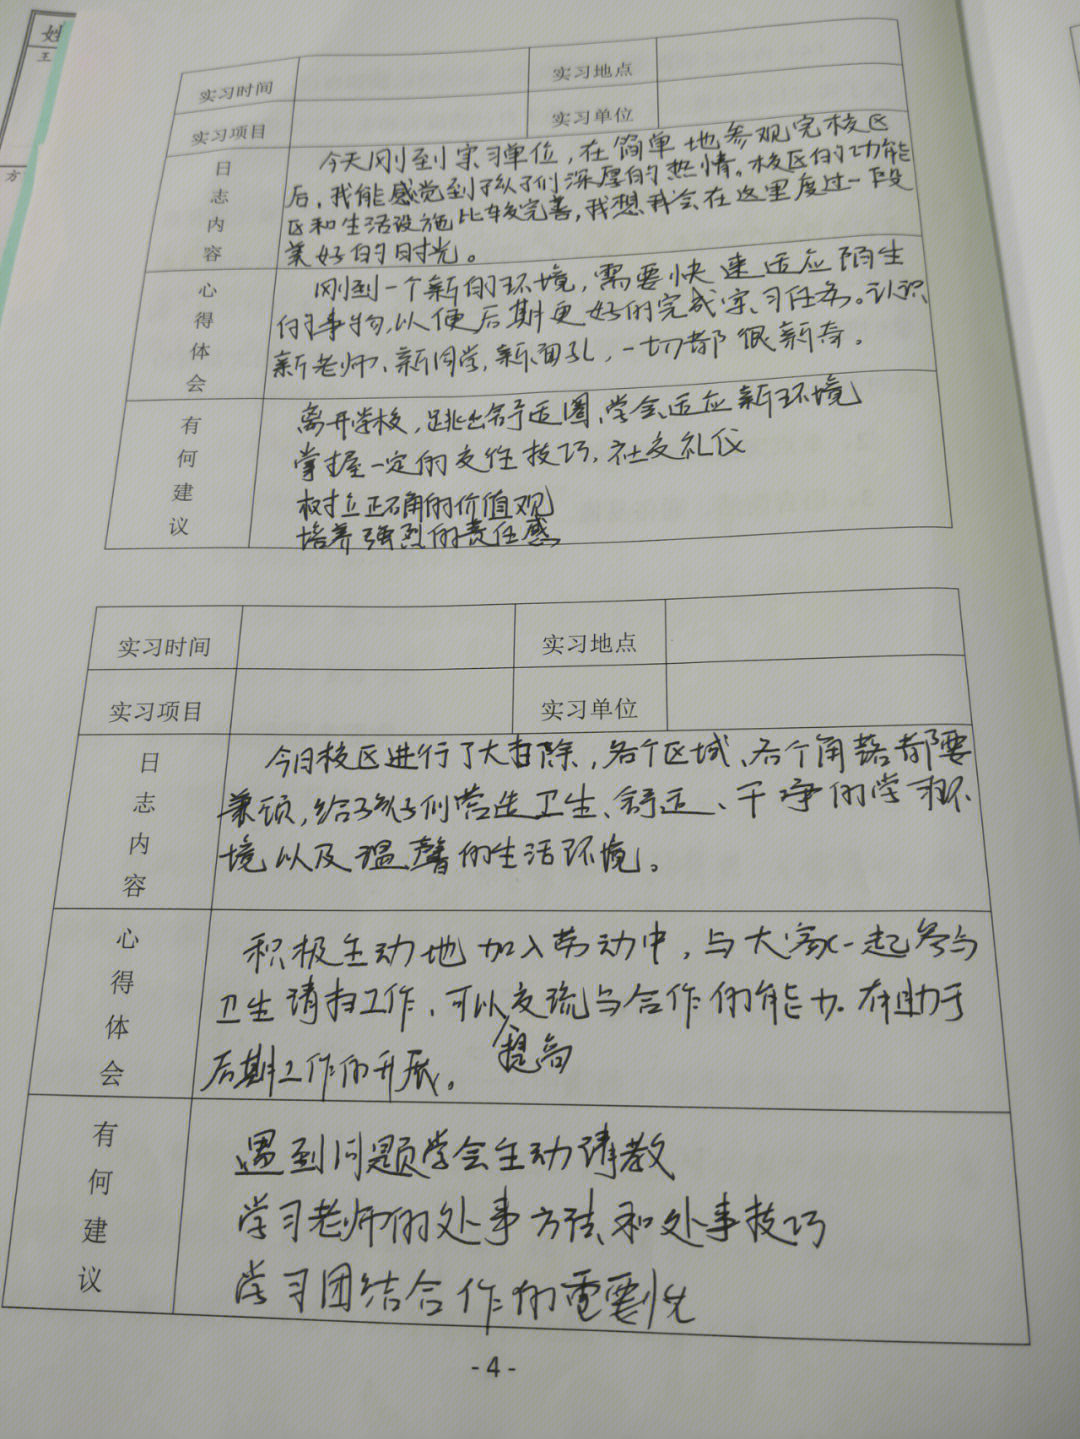 姓
王
方
实习时间 实习地点
实习项目 实习单位
日志内容
今天刚到实习单位,在简单地参观完校区
后,我能感觉到孩子们深厚的热情。校区的功能
区和生活设施比较完善,我想我会在这里度过一段
美好的时光。
心得体会
刚到一个新的环境,需要快速适应陌生
的事物,以便后期更好的完成实习任务。认识
新老师、新同学,新面孔,一切都很新奇。
有何建议
离开学校,跳出舒适圈、学会适应新环境
掌握一定的交往技巧、社交礼仪
树立正确的价值观
培养强烈的责任感
实习时间 实习地点
实习项目 实习单位
日志内容
今日校区进行了大扫除,各个区域、各个角落都要
兼顾,给孩子们营造卫生、舒适、干净的学习环
境以及温馨的生活环境。
心得体会
积极主动地加入劳动中,与大家一起参与
卫生清扫工作,可以提高交流与合作的能力。有助于
后期工作的开展。
有何建议
遇到问题学会主动请教
学习老师的处事方法和处事技巧
学习团结合作的重要性
- 4 -